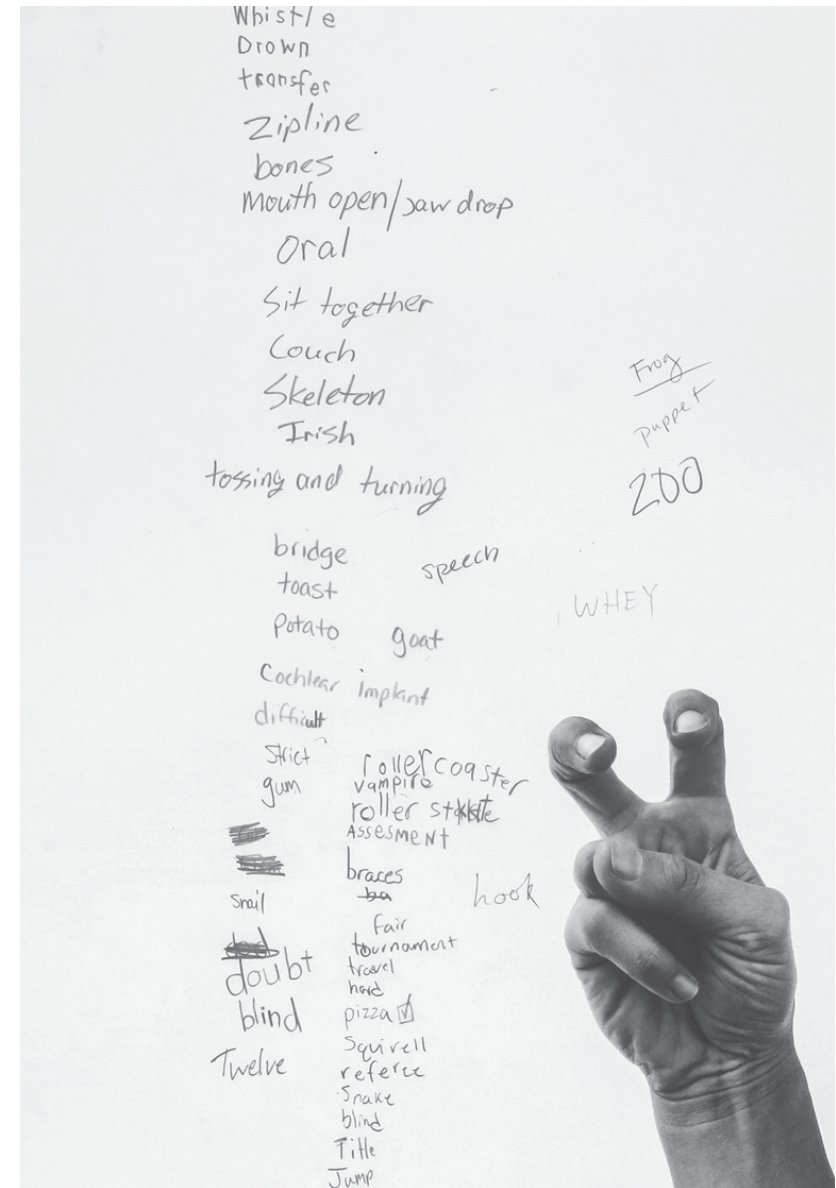 Whistle
Drown
transfer
Zipline
bones
Mouth open/Jaw drop
Oral
Sit together
Couch
Skeleton
Irish
tossing and turning
Frog
puppet
ZOO
bridge
speech
toast
WHEY
Potato
goat
Cochlear implant
difficult
Strict
gum
rollercoaster
vampire
roller skate
ASSESMENT
braces
ba
hook
Snail
fair
tournament
doubt
travel
hard
blind
pizza
Twelve
Squirell
referee
Snake
blind
Title
Jump